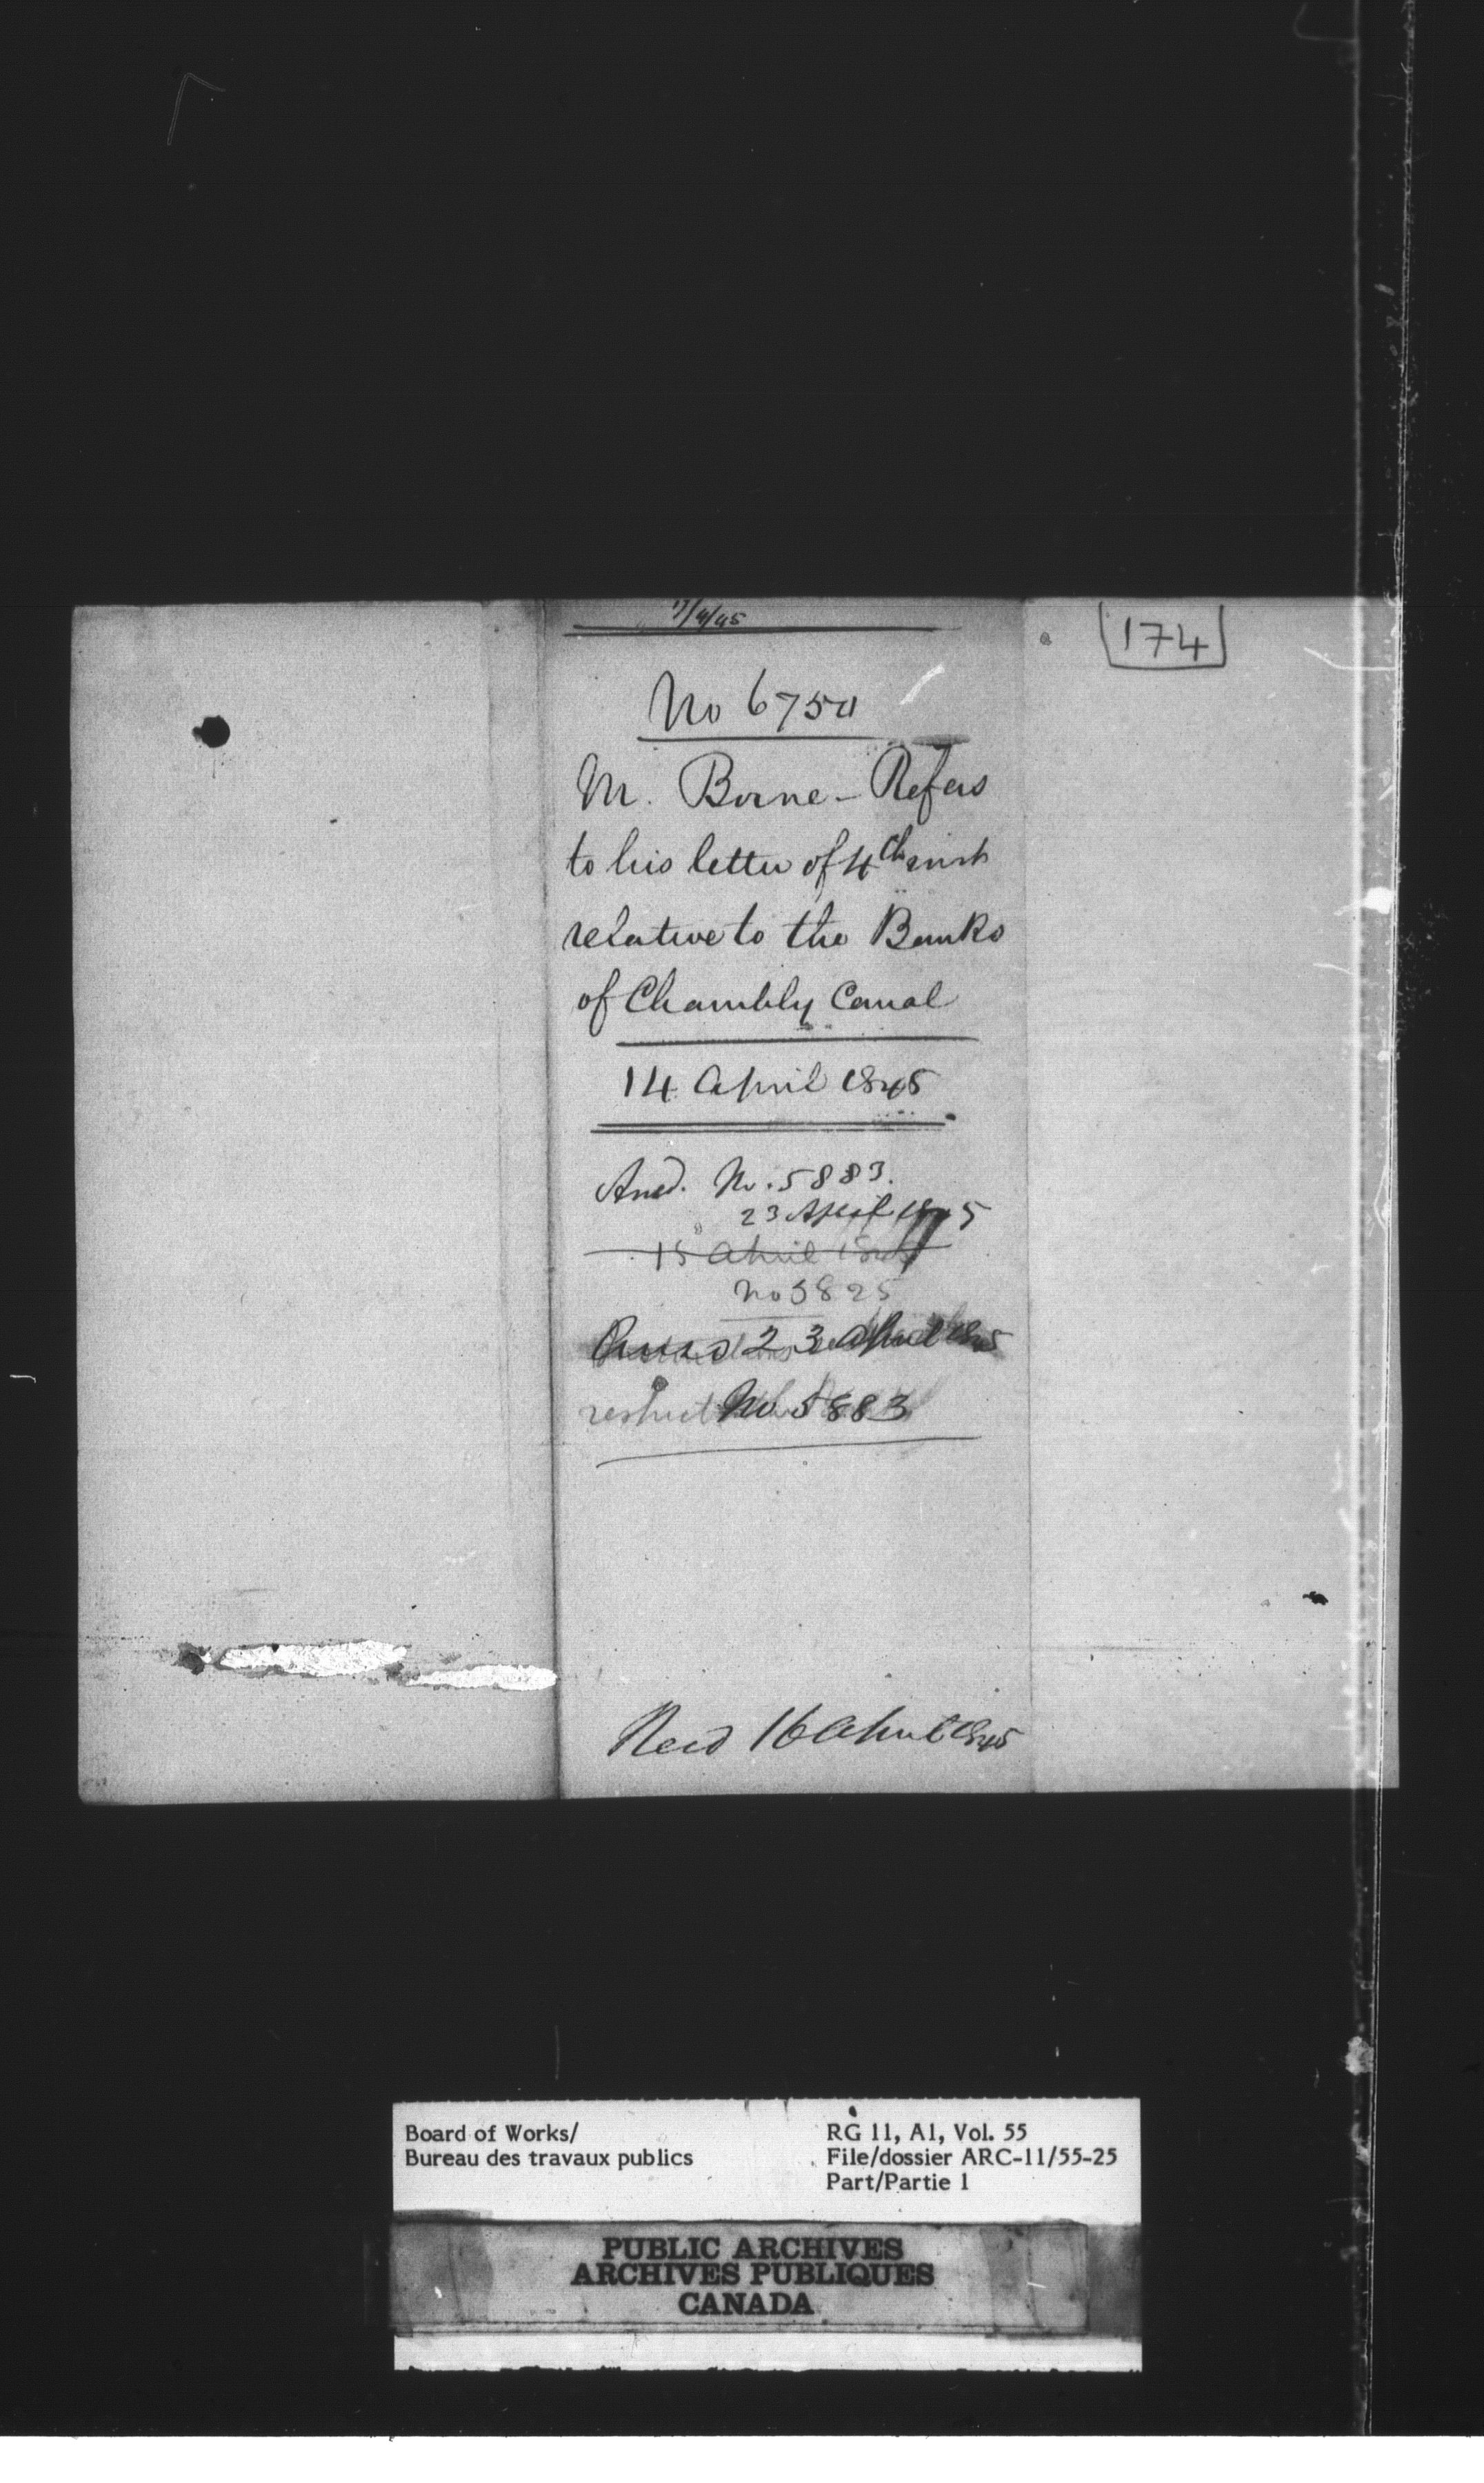 [174]
No 6750
M. Borne - Refers
to his letter of 4th inst
relative to the Banks
of Chambly Canal
14 April 1845
Ansd. No. 5883.
23 April 1845
15 April 1845
No 5825
23 April 1845
No 5883
Recd 16 April 1845
Board of Works/
Bureau des travaux publics
RG 11, A1, Vol. 55
File/dossier ARC-11/55-25
Part/Partie 1
PUBLIC ARCHIVES
ARCHIVES PUBLIQUES
CANADA